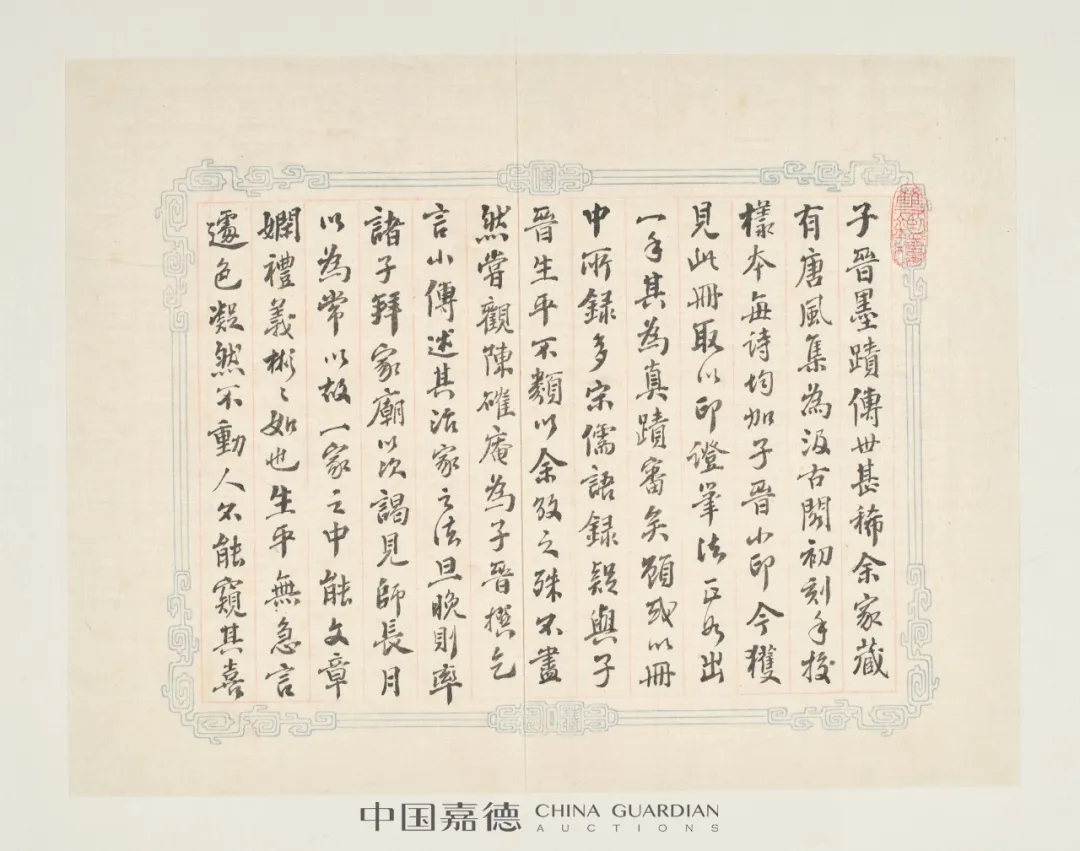 子晉墨蹟傳世甚稀余家藏
有唐風集為汲古閣初刻手校
樣本每詩均加子晉小印今獲
見此冊取以印證筆法正如出
一手其為真蹟審矣顧或以冊
中所錄多宋儒語錄疑與子
晉生平不類以余攷之殊不盡
然嘗觀陳確庵為子晉撰乞
言小傳述其治家之法旦晚則率
諸子拜家廟以次謁見師長月
以為常以故一家之中能文章
嫻禮義彬彬如也生平無急言
遽色凝然不動人不能窺其喜
中国嘉德 CHINA GUARDIAN
AUCTIONS